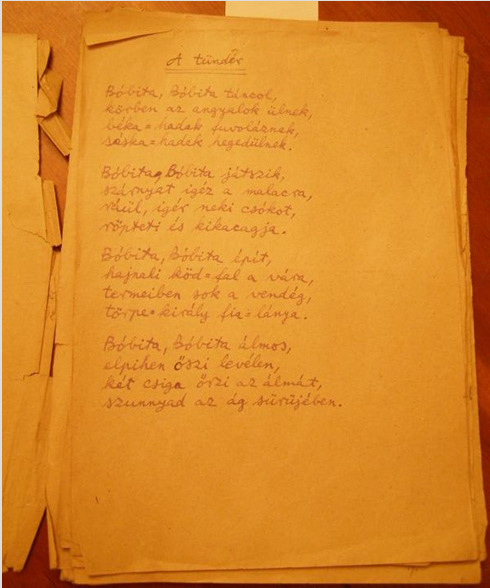 A tündér
Bóbita, Bóbita táncol,
körben az angyalok ülnek,
béka=hadak fuvoláznak,
sáska=hadak hegedülnek.
Bóbita, Bóbita játszik,
szárnyat igéz a malacra,
ráül, igér neki csókot,
röpteti és kikacagja.
Bóbita, Bóbita épít,
hajnali köd=fal a vára,
termeiben sok a vendég,
törpe=király fia=lánya.
Bóbita, Bóbita álmos,
elpihen őszi levélen,
két csiga őrzi az álmát,
szunnyad az ág sürüjében.